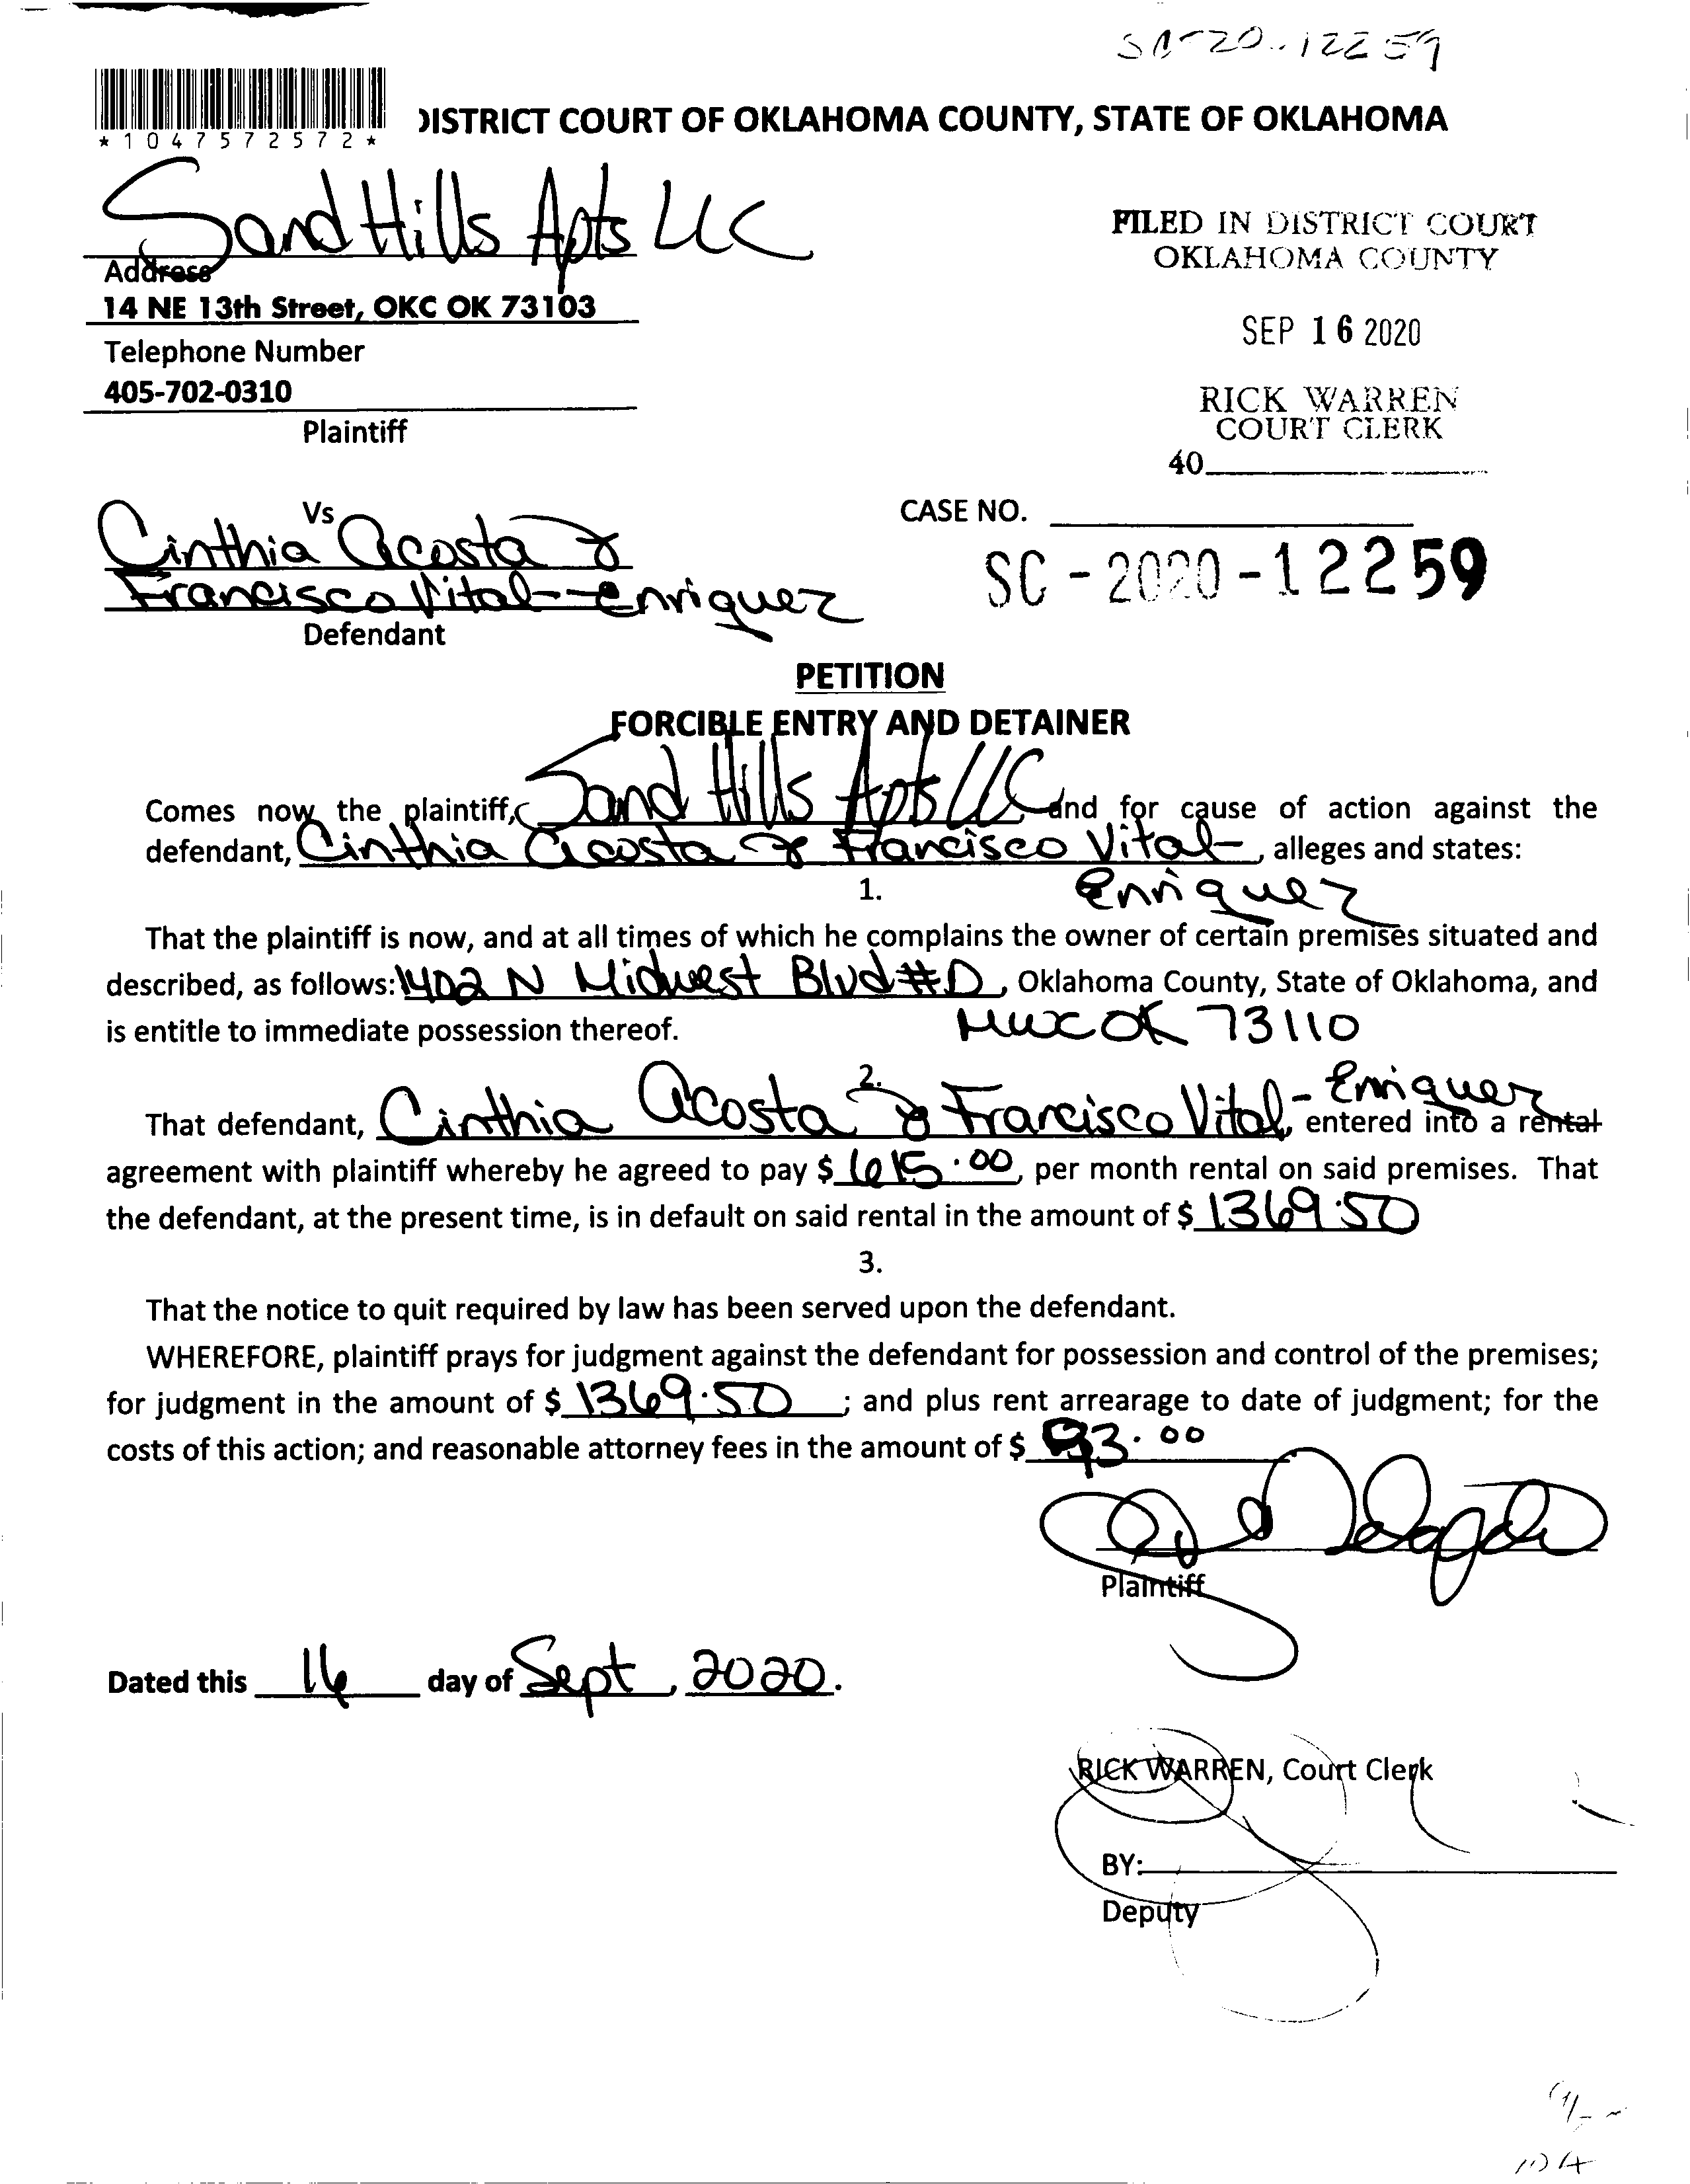 SC-20-12259
*1047572572*
DISTRICT COURT OF OKLAHOMA COUNTY, STATE OF OKLAHOMA
Sand Hills Apts LLC
Address
14 NE 13th Street, OKC OK 73103
Telephone Number
405-702-0310
Plaintiff
FILED IN DISTRICT COURT
OKLAHOMA COUNTY
SEP 16 2020
RICK WARREN
COURT CLERK
40
Vs
Cinthia Acosta &
Francisco Vital-Enriquez
Defendant
CASE NO.
SC-2020-12259
PETITION
FORCIBLE ENTRY AND DETAINER
Comes now the plaintiff, Sand Hills Apts LLC, and for cause of action against the
defendant, Cinthia Acosta & Francisco Vital-, alleges and states:
Enriquez
1.
That the plaintiff is now, and at all times of which he complains the owner of certain premises situated and
described, as follows: 1402 N Midwest Blvd #D, Oklahoma County, State of Oklahoma, and
is entitle to immediate possession thereof. MWC OK 73110
2.
That defendant, Cinthia Acosta & Francisco Vital-Enriquez, entered into a rental
agreement with plaintiff whereby he agreed to pay $ 615.00, per month rental on said premises. That
the defendant, at the present time, is in default on said rental in the amount of $ 1369.50
3.
That the notice to quit required by law has been served upon the defendant.
WHEREFORE, plaintiff prays for judgment against the defendant for possession and control of the premises;
for judgment in the amount of $ 1369.50 ; and plus rent arrearage to date of judgment; for the
costs of this action; and reasonable attorney fees in the amount of $ 93.00
Plaintiff
Dated this 16 day of Sept, 2020.
RICK WARREN, Court Clerk
BY:
Deputy